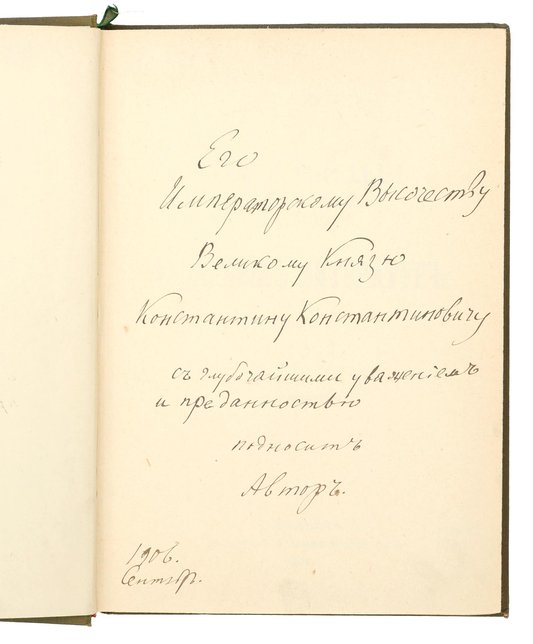 Его
Императорскому Высочеству
Великому Князю
Константину Константиновичу
съ глубочайшими уваженіемъ
и преданностью
подноситъ
Авторъ.
1906.
Сентябр.